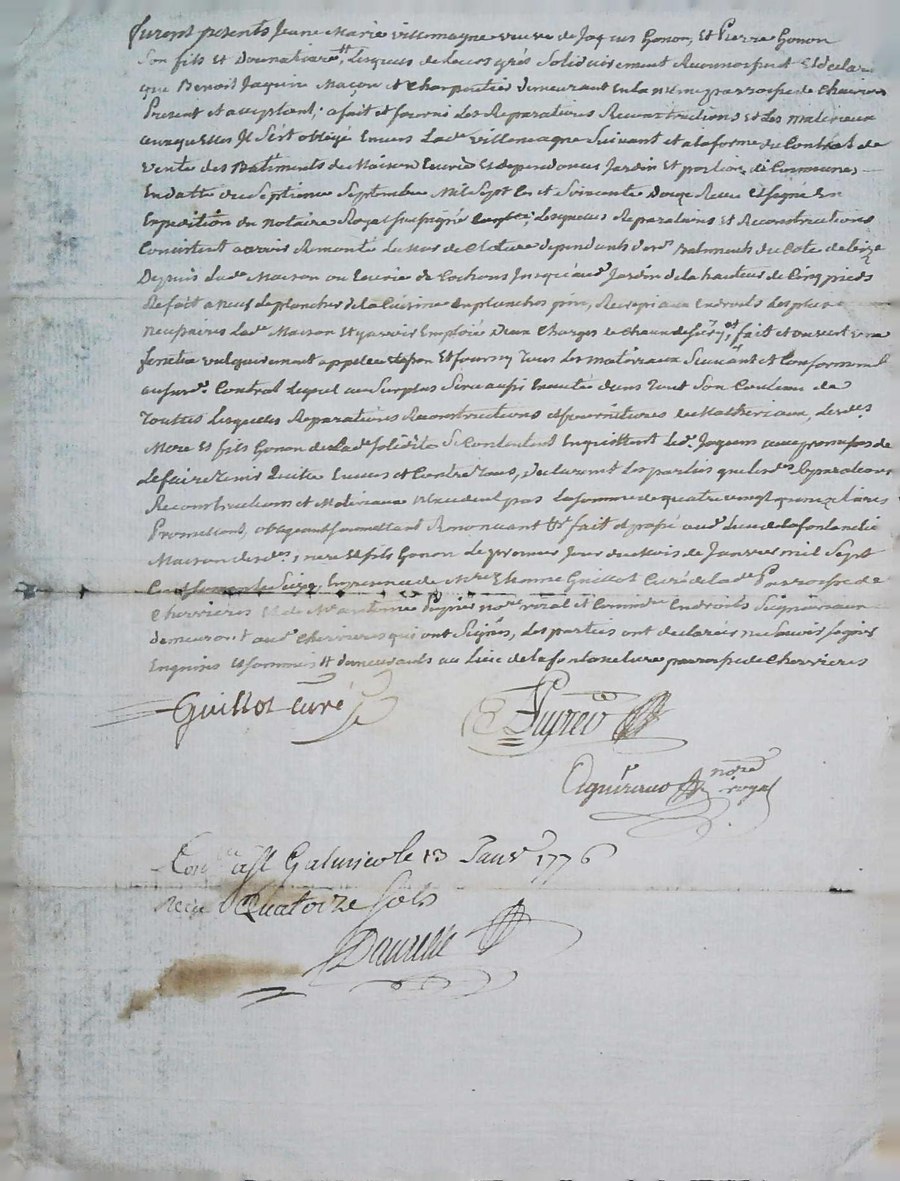 furent presents Jeane Marie villemagne veuve de Jaques Gonon, Et Pierre Gonon
Son fils et Donnataire, Lesquels de leurs grés Solidairement Reconnoissent Et declare
que Benoit Jaquin Maçon et Charpentier demeurant en la meme parroisse de
Present et acceptant, a fait et fourni Les Reparations Reconstructions et Les materieaux
auxquelles Il s'est obligé Envers La de villemagne Suivant et a la forme du Contrat de
vente des Batiments de Maison Ecurie Et dependences Jardin Et portion de Communes
En datte du Septieme Septembre Mil Sept Cent Soixante Douze Receu et signé En
Expedition du notaire Royal soussigné Lesquelles Reparations Et Reconstructions
Consistent a avoir Remonté Le Mur de Cloture dependants Batiments du Coté de bize
Depuis Lad. Maison ou Ecurie de Cochons Jusqu'aud. Jardin de la hauteur de Cinq pieds
Refait a neuf Le plancher de la Cuisine En planches pin, Recrepi aux Endroits des plus
necessaires Lad. Maison Et y avoir Emploié Deux Charges de Chaux fait et ouvert une
fenetre vulguairement appellee Et fourny Tous Les materiaux Suivant et Conformement
ausurd. Contrat Lequel au Surplus Sera aussi Executé dans Tout Son Contenu de
Touttes Lesquelles Reparations Reconstructions et fournitures de Matheriaux, Lesd.
Mere Et fils Gonon de Lad. solidité Se Contentent En quittent Led. Jaquin avec promesse de
Le faire Tenir Quitte Envers et Contre Tous, declarant Les parties que Lesd. Reparations
Reconstructions et Materiaux N'Excedent pas La somme de quatre vingt quinze Livres
Promettant, obligeant soumettant Renonceant &c fait et passé aud. Lieu de la fontanelle
Maison desd. mere Et fils Gonon Le premier Jour du Mois de Janvier mil Sept
Cent Soixante Seize En presence de Mre Etienne Guillot Curé de Lad. Parroisse de
Cherrieres Et de Me antoine nore roial et Commre En droits Seigneuriaux
demeurant aud. Cherrieres qui ont Signés, Les parties ont declarés ne Savoir signer
Enquises et sommées Et demeurants au Lieu de la fontanelle parroisse de Cherrieres
Guillot curé
nore
royal
a St Galmier le 13 Janvr 1776
Receu Quatorze Sols